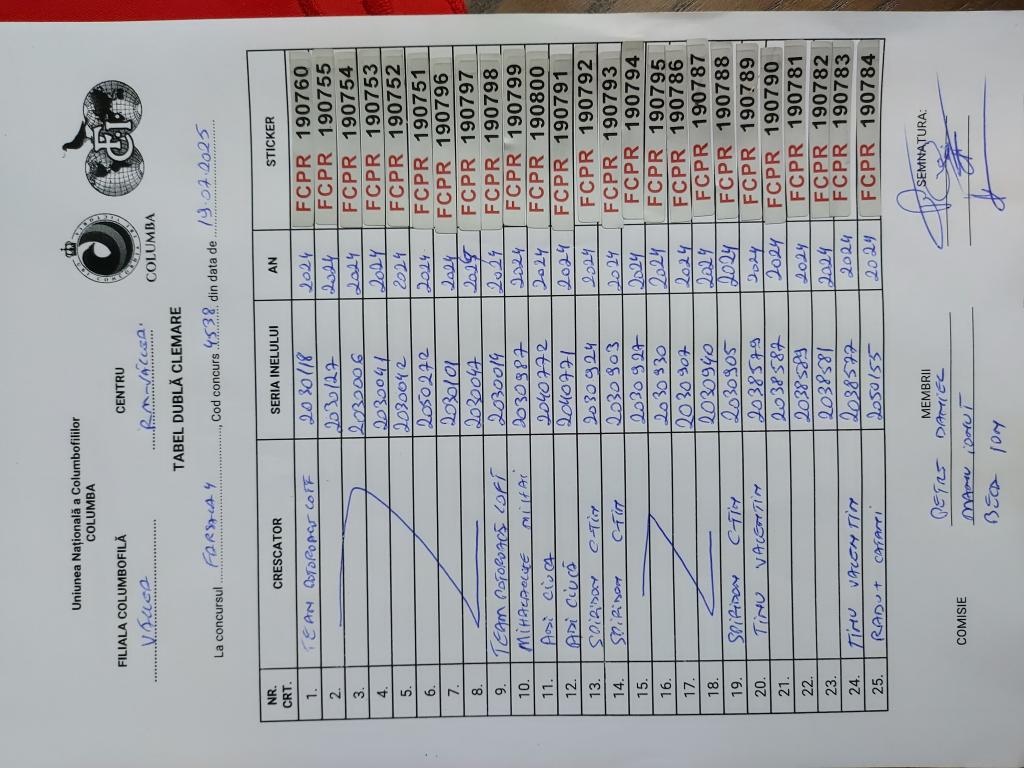 Uniunea Națională a Columbofililor
COLUMBA
COLUMBA
FILIALA COLUMBOFILĂ CENTRU
Vâlcea
TABEL DUBLĂ CLEMARE
La concursul FARSALA 4, Cod concurs 4538 din data de 19.07.2025
NR. CRT. CRESCATOR SERIA INELULUI AN STICKER
1. TEAM LOFT 2030118 2024 FCPR 190760
2. 2030127 2024 FCPR 190755
3. 2030006 2024 FCPR 190754
4. 2030041 2024 FCPR 190753
5. 2030042 2024 FCPR 190752
6. 2050272 2024 FCPR 190751
7. 2030101 2024 FCPR 190796
8. 2030047 FCPR 190797
9. TEAM LOFT 2030014 2024 FCPR 190798
10. MIHAI 2030987 2024 FCPR 190799
11. ADI CIUCĂ 2040772 2024 FCPR 190800
12. ADI CIUCĂ 2040771 2024 FCPR 190791
13. SPIRIDON C-TIN 2030924 2024 FCPR 190792
14. SPIRIDON C-TIN 2030903 2024 FCPR 190793
15. 2030927 2024 FCPR 190794
16. 2030930 2024 FCPR 190795
17. 2030907 2024 FCPR 190786
18. 2030940 2024 FCPR 190787
19. SPIRIDON C-TIN 2030905 2024 FCPR 190788
20. TINU VALENTIN 2038579 2024 FCPR 190789
21. 2038587 2024 FCPR 190790
22. 2038589 2024 FCPR 190781
23. 2038581 2024 FCPR 190782
24. TINU VALENTIN 2038577 2024 FCPR 190783
25. RADUT 2050155 2024 FCPR 190784
COMISIE MEMBRII SEMNATURA:
PETRE DANIEL
IONUT
ION